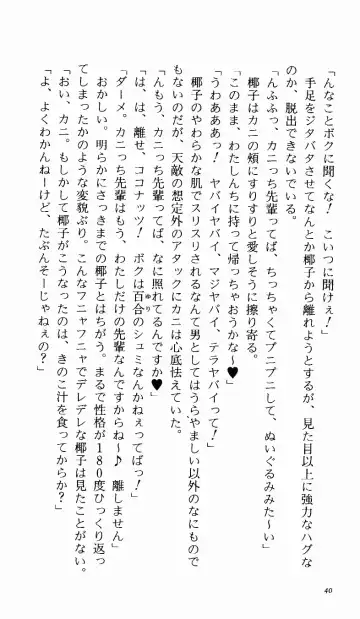 「んなことボクに聞くな！　こいつに聞けぇ！」
手足をジタバタさせてなんとか椰子から離れようとするが、見た目以上に強力なハグな
のか、脱出できないでいる。
「んふふっ、カニっち先輩ってば、ちっちゃくてプニプニして、ぬいぐるみみた〜い」
椰子はカニの頬にすりすりと愛しそうに擦り寄る。
「このまま、わたしんちに持って帰っちゃおうかな〜♥」
「うわああああっ！　ヤバイヤバイ、マジヤバイ、テラヤバイって！」
椰子のやわらかな肌でスリスリされるなんて男としてはうらやましい以外のなにもので
もないのだが、天敵の想定外のアタックにカニは心底怯えていた。
「んもう、カニっち先輩ってば、なに照れてるんですか♥」
「は、は、離せ、ココナッツ！　ボクは百合のシュミなんかねぇってばっ！」
ゆり
「ダーメ。カニっち先輩はもう、わたしだけの先輩なんですからね〜♪　離しません」
おかしい。明らかにさっきまでの椰子とはちがう。まるで性格が１８０度ひっくり返っ
てしまったかのような変貌ぶり。こんなフニャフニャでデレデレな椰子は見たことがない。
「おい、カニ。もしかして椰子がこうなったのは、きのこ汁を食ってからか？」
「よ、よくわかんねーけど、たぶんそーじゃねぇの？」
40